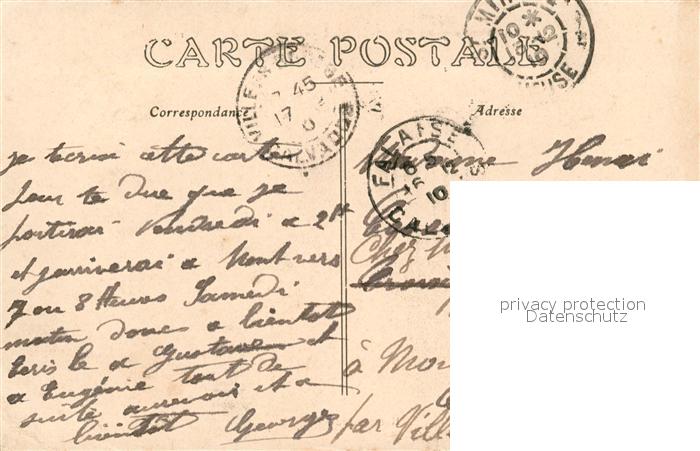 CARTE POSTALE
Correspondance
Adresse
je t'ecris cette carte
pour te dire que je
partirai Vendredi a 2H
et j'arriverai a Mont vers
7 ou 8 Heures Samedi
matin donc a bientot
Ecris le a Gustave et
a Eugénie tout de
suite aurevoir et a
bientot Georges
Madame Henri
Chez
à Mon
par Vill
FALAISE
CAL
17 45
CALVADOS
MEUSE
privacy protection
Datenschutz